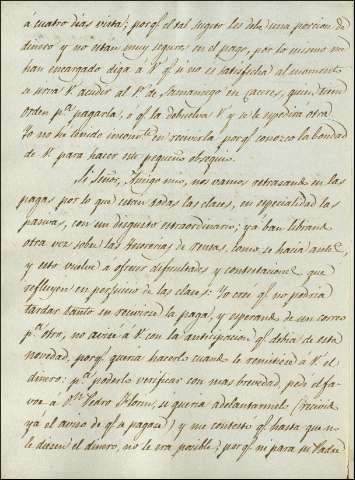 á cuatro dias vista; porqe. el tal sugeto les debe una porcion de
dinero y no están muy seguros en el pago, por lo mismo me
han encargado diga á V. qe. si no es satisfecha al momento
se sirva V. acudir al Sr. de Samaniego en Caceres, quien tiene
orden pa. pagarla, ó qe. la debuelva V. y se le espedira otra
Yo no he tenido inconvte. en remitirla porqe. conozco la bondad
de V. para hacer este pequeño obsequio.
Si Señor, Amigo mio, nos vamos retrasando en las
pagas por lo que estan todas las clases, en especialidad las
pasivas, con un disgusto estraordinario; ya han librado
otra vez sobre las thesorerias de rentas, como se hacia antes,
y esto vuelve a ofrecer dificultades y contestaciones que
refluyen en perjuicio de las clases: Yo creí qe. no podria
tardar tanto en recivirse la paga, y esperando de un correo
pa. otro, no avisé á V. con la anticipacion qe. debia de esta
novedad, porqe. queria hacerlo cuando le remitiese á V. el
dinero: pa. poderlo verificar con mas brevedad, pedí el fa-
vor á Dn. Pedro si queria adelantarmelo (recivido
yá el aviso de qe. se pagava) y me contestó qe. hasta que no
le diesen el dinero, no le era posible; porqe. ni para su Padre